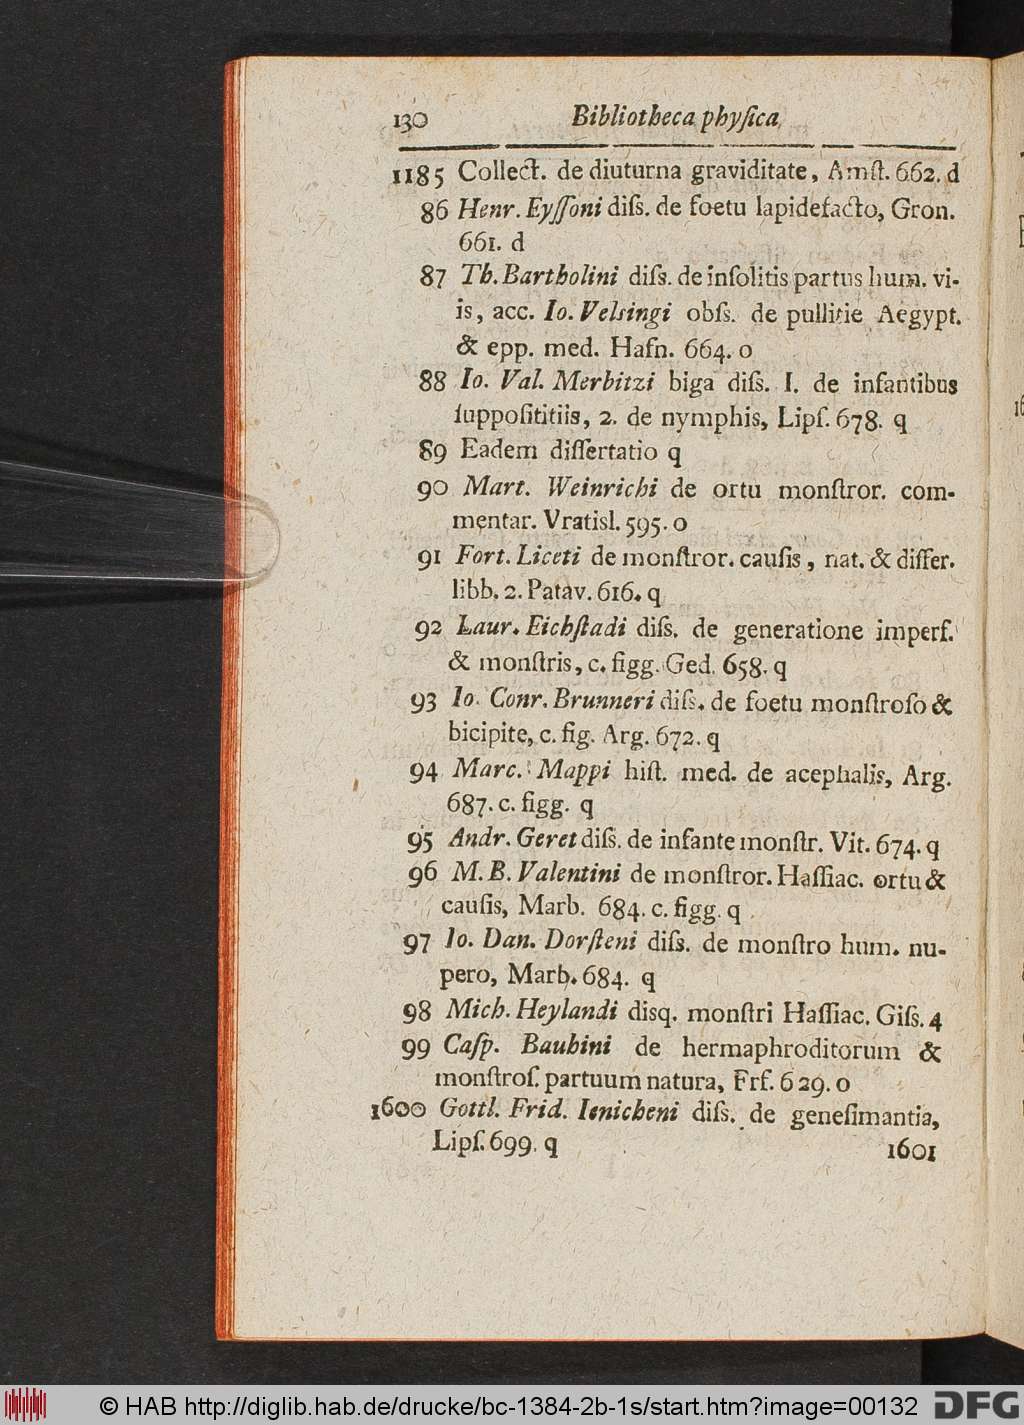 130 Bibliotheca phyſica
1185 Collect. de diuturna graviditate, Amſt. 662. d
86 Henr. Eyſſoni diſs. de foetu lapidefacto, Gron.
661. d
87 Th. Bartholini diſs. de inſolitis partus hum. vi-
is, acc. Io. Velsingi obſs. de pullitie Aegypt.
& epp. med. Hafn. 664. o
88 Io. Val. Merbitzi biga diſs. I. de infantibus
ſuppoſititiis, 2. de nymphis, Lipſ. 678. q
89 Eadem diſſertatio q
90 Mart. Weinrichi de ortu monſtror. com-
mentar. Vratisl. 595. o
91 Fort. Liceti de monſtror. cauſis, nat. & differ.
libb. 2. Patav. 616. q
92 Laur. Eichſtadi diſs. de generatione imperf.
& monſtris, c. figg. Ged. 658. q
93 Io. Conr. Brunneri diſs. de foetu monſtroſo &
bicipite, c. fig. Arg. 672. q
94 Marc. Mappi hiſt. med. de acephalis, Arg.
687. c. figg. q
95 Andr. Geret diſs. de infante monſtr. Vit. 674. q
96 M. B. Valentini de monſtror. Haſſiac. ortu &
cauſis, Marb. 684. c. figg. q
97 Io. Dan. Dorſteni diſs. de monſtro hum. nu-
pero, Marb. 684. q
98 Mich. Heylandi disq. monſtri Haſſiac. Giſs. 4
99 Caſp. Bauhini de hermaphroditorum &
monſtroſ. partuum natura, Frf. 629. o
1600 Gottl. Frid. Ienicheni diſs. de geneſimantia,
Lipſ. 699. q
1601
© HAB http://diglib.hab.de/drucke/bc-1384-2b-1s/start.htm?image=00132
DFG